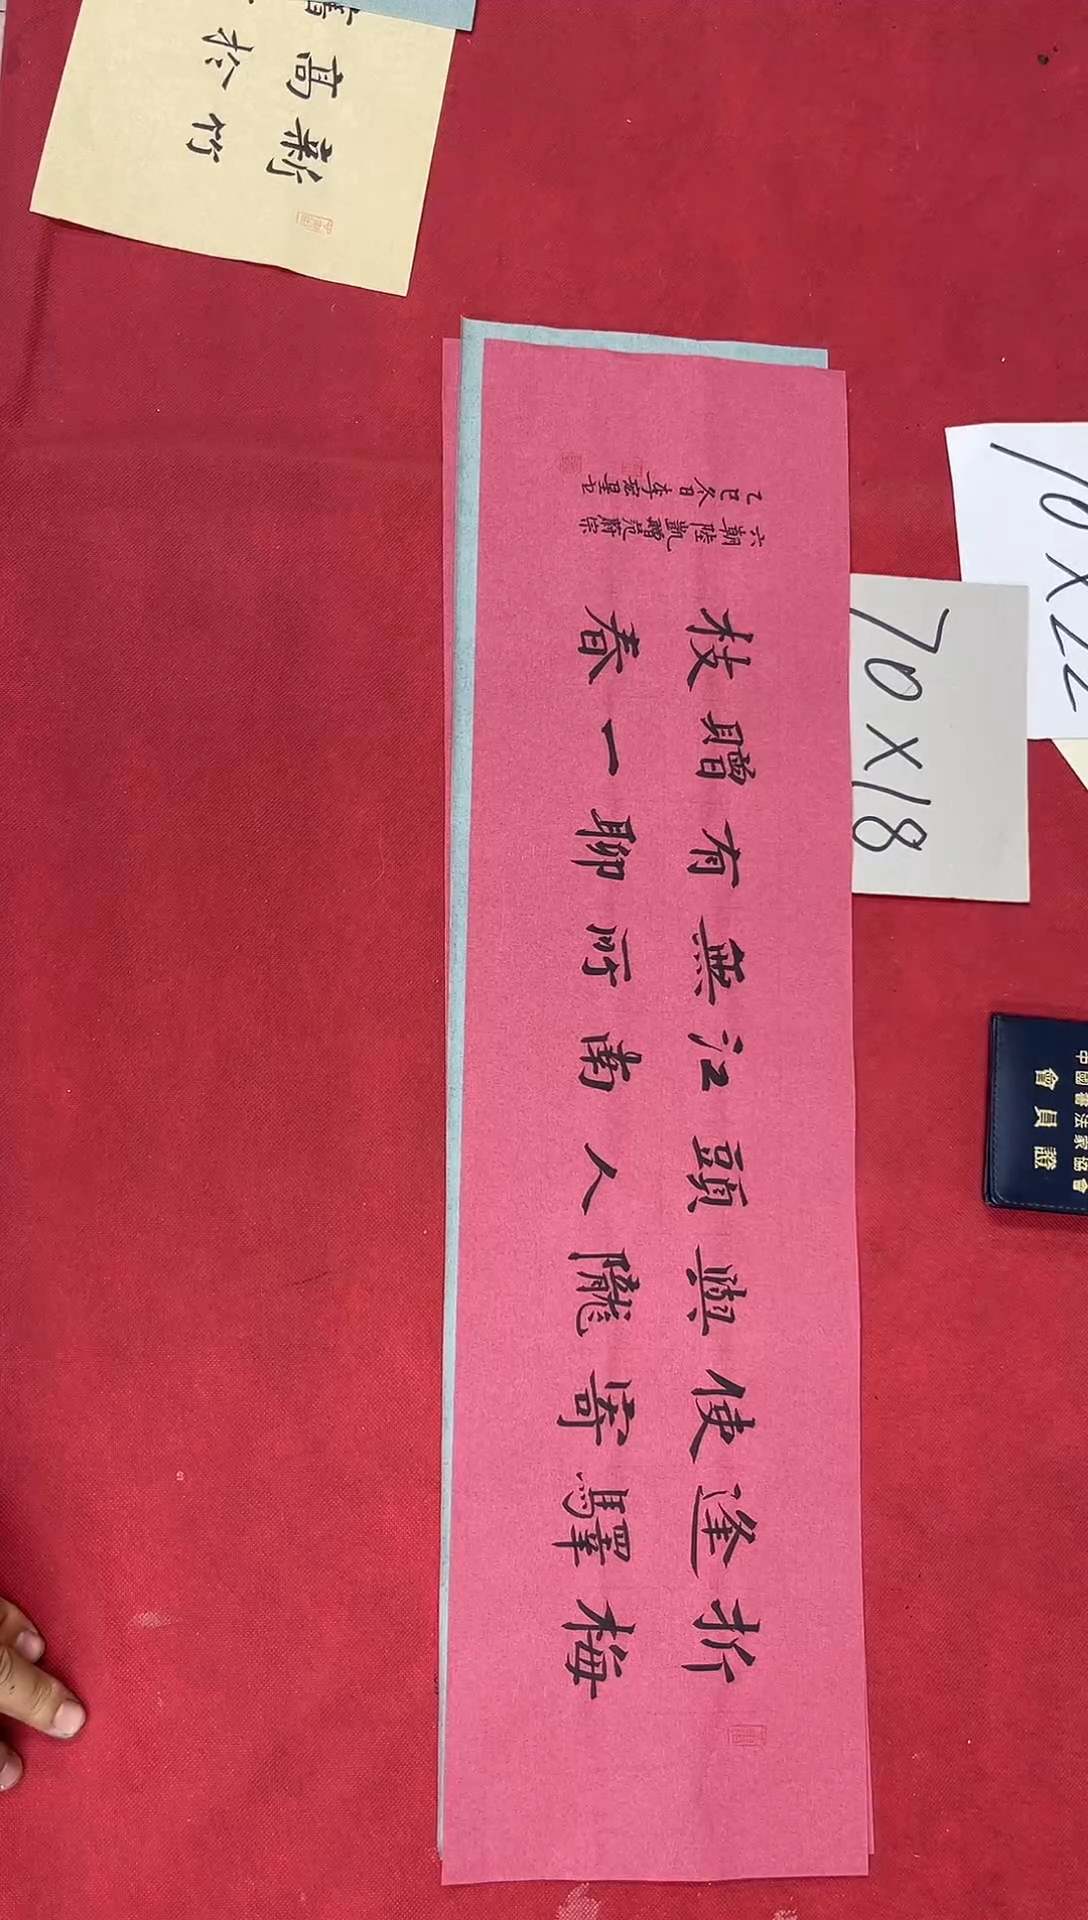 折梅
逢驛
使寄
與隴
頭人
江南
無所
有聊
贈一
枝春
六朝陸凱贈范蔚宗
乙巳冬日李宏
新竹
高於
70×18
70×22
中國書法家協會
會員證